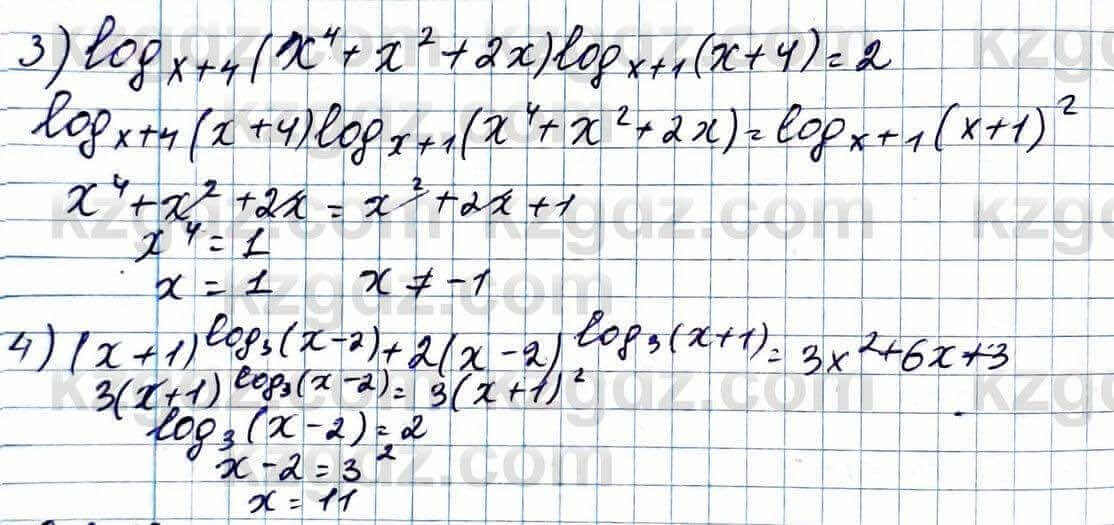 3) log_{x+4}(x⁴+x²+2x)log_{x+1}(x+4)=2
log_{x+4}(x+4)log_{x+1}(x⁴+x²+2x)=log_{x+1}(x+1)²
x⁴+x²+2x=x²+2x+1
x⁴=1
x=1 x≠-1
4) (x+1)^{log₃(x-2)}+2(x-2)^{log₃(x+1)}=3x²+6x+3
3(x+1)^{log₃(x-2)}=3(x+1)²
log₃(x-2)=2
x-2=3²
x=11